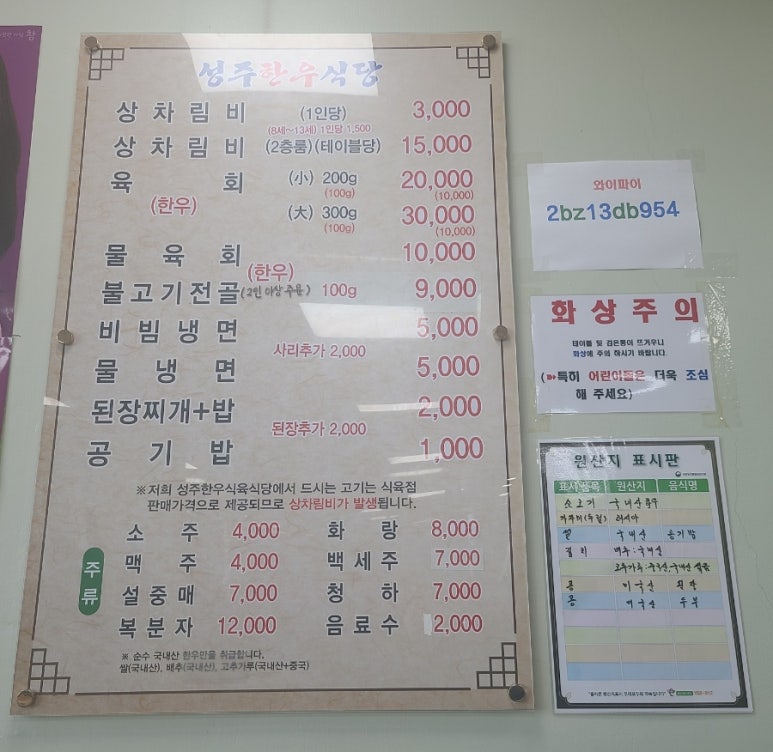 성주한우식당
상 차 림 비 (1인당) 3,000
(8세~13세) 1인당 1,500
상 차 림 비 (2층룸)(테이블당) 15,000
육 회 (小) 200g 20,000
(100g) (10,000)
(한우) (大) 300g 30,000
(100g) (10,000)
물 육 회 10,000
(한우)
불고기전골 (2인 이상 주문) 100g 9,000
비 빔 냉 면 5,000
사리추가 2,000
물 냉 면 5,000
된장찌개+밥 2,000
된장추가 2,000
공 기 밥 1,000
※저희 성주한우식육식당에서 드시는 고기는 식육점
판매가격으로 제공되므로 상차림비가 발생됩니다.
주류
소 주 4,000 화 랑 8,000
맥 주 4,000 백 세 주 7,000
설 중 매 7,000 청 하 7,000
복 분 자 12,000 음 료 수 2,000
※ 순수 국내산 한우만을 취급합니다.
쌀(국내산), 배추(국내산), 고추가루(국내산+중국)
와이파이
2bz13db954
화 상 주 의
테이블 및 검은통이 뜨거우니
화상에 주의 하시기 바랍니다.
(➽특히 어린이들은 더욱 조심
해 주세요)
원산지 표시판
표시품목 원산지 음식명
소고기 국내산 한우
러시아
쌀 국내산 공기밥
김치 배추:국내산
고추가루:중국산,국내산
콩 미국산 된장
콩 미국산 두부